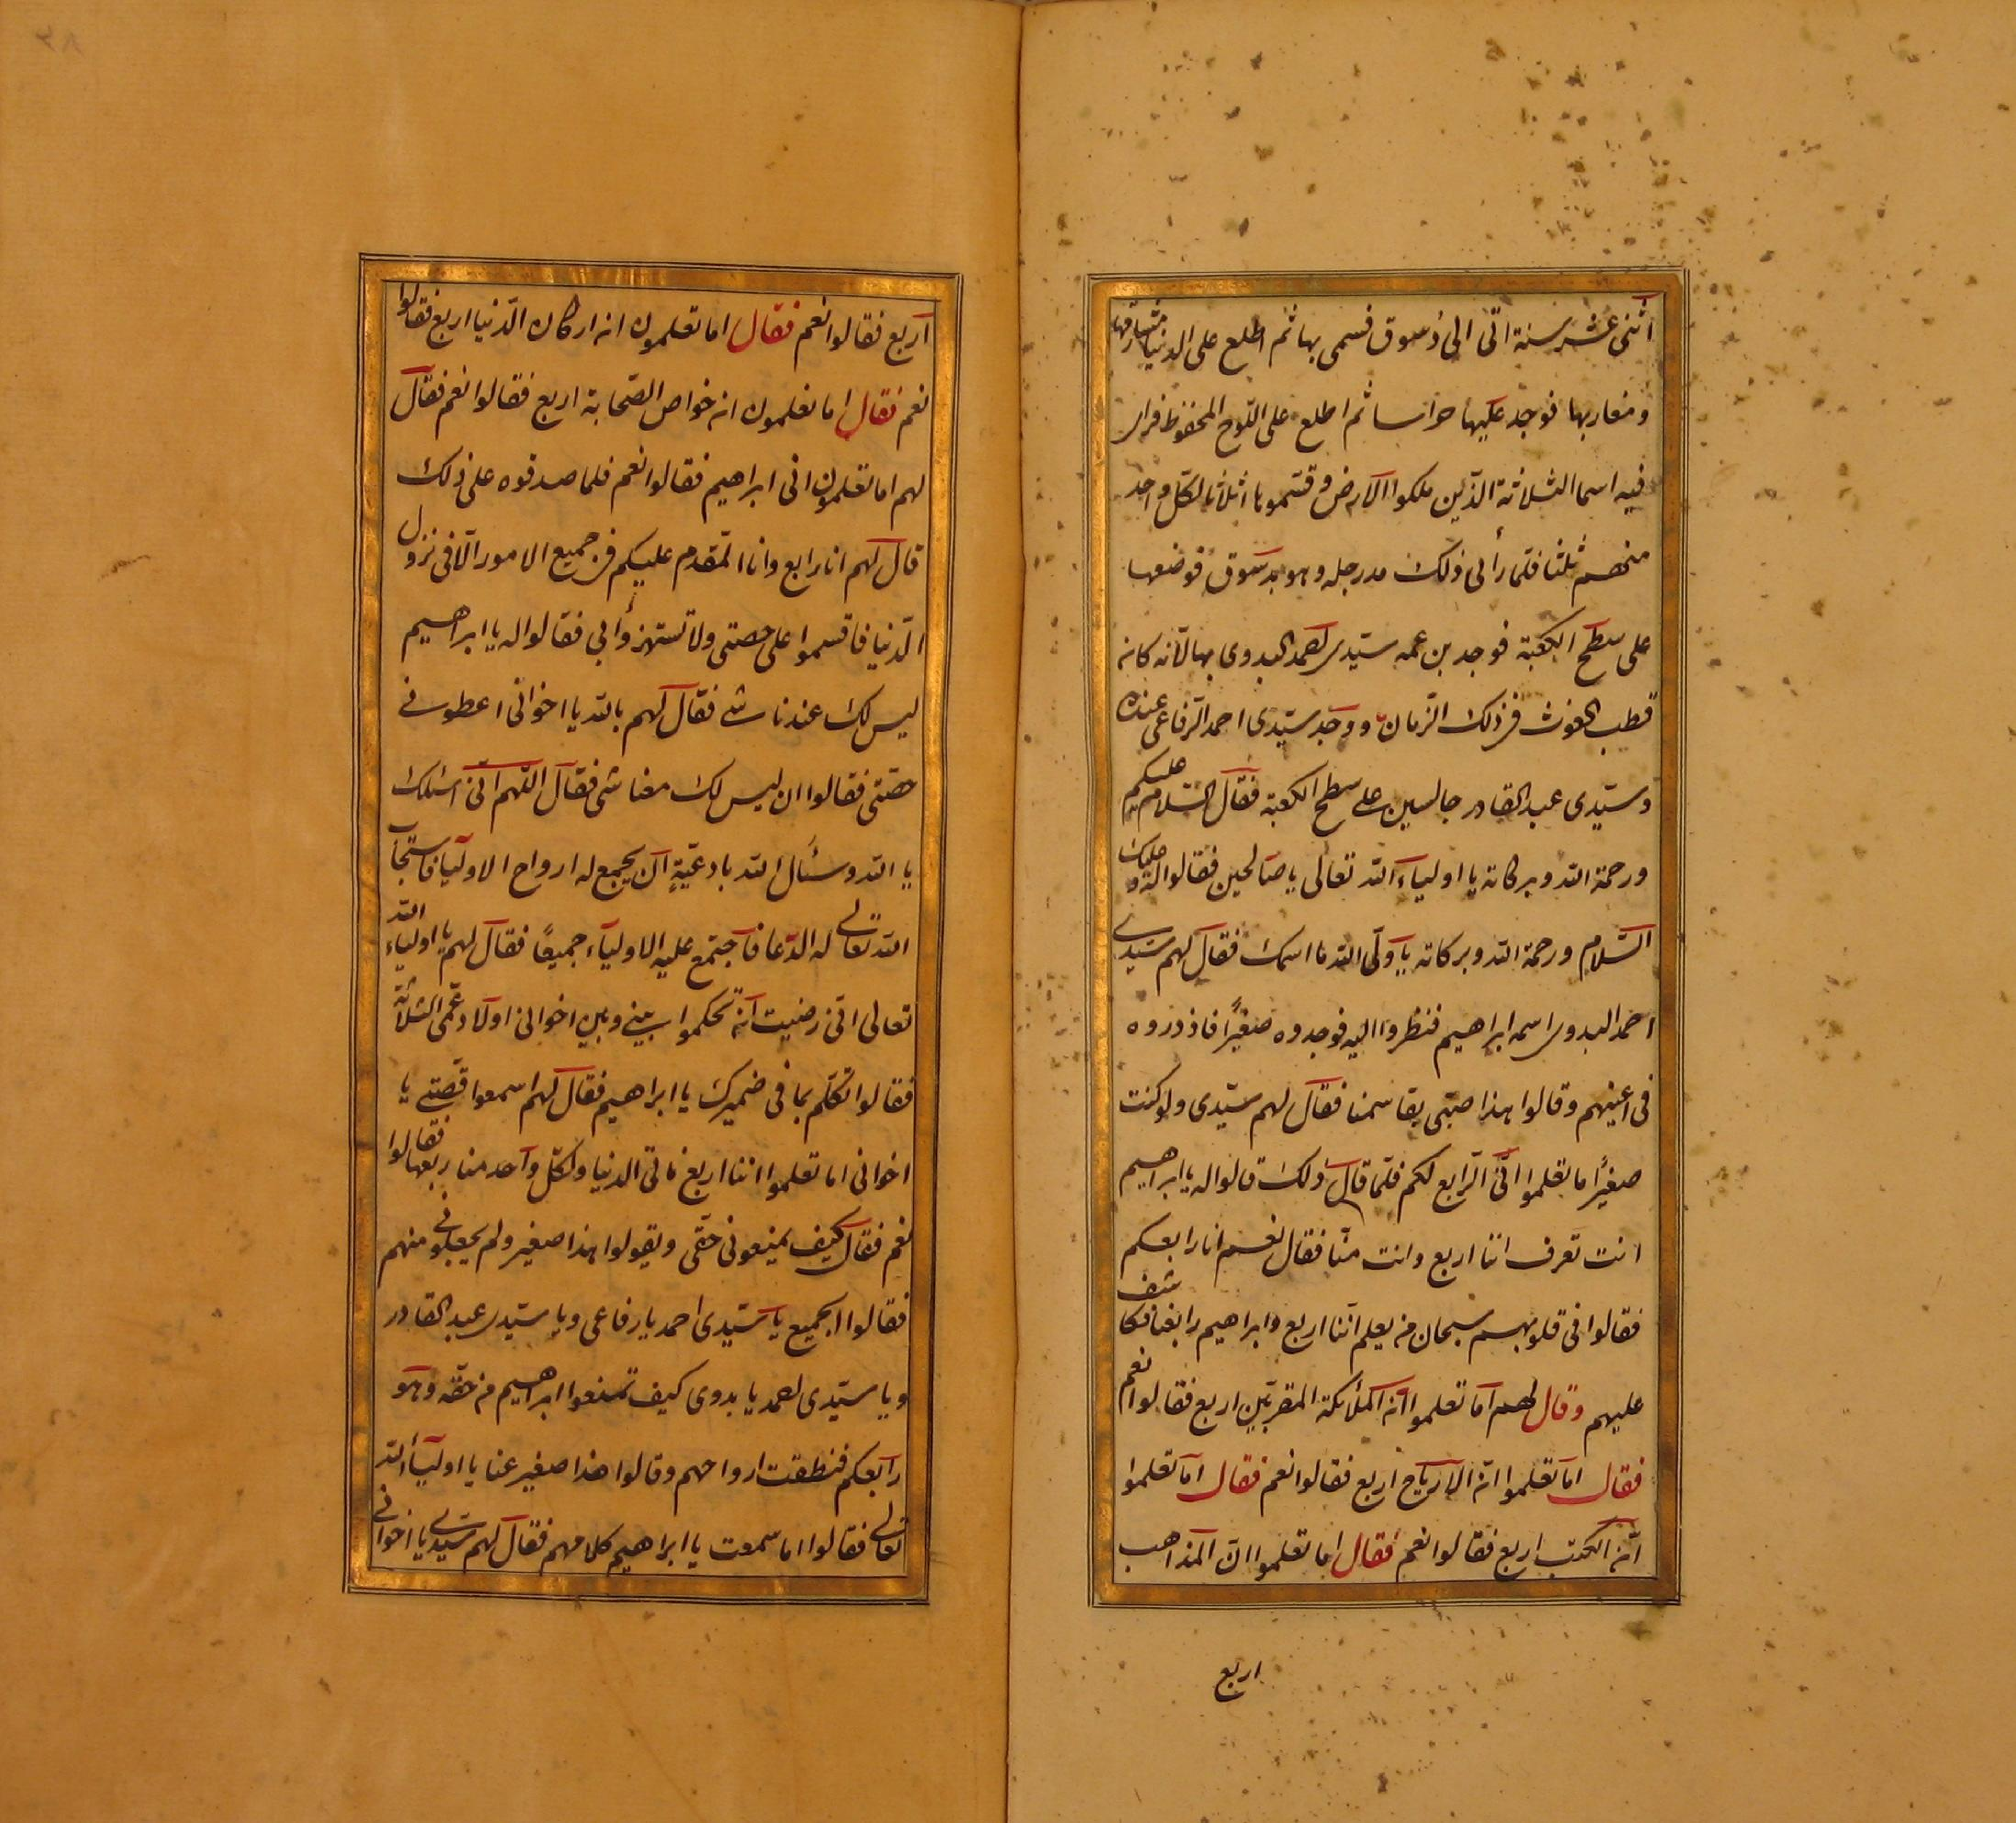 اثنى عشر سنة اتى الى دسوق فسمى بها ثم اطلع على الدنيا مشارقها
ومغاربها فوجد عليها حراسا ثم اطلع على اللوح المحفوظ فراى
فيه اسما الثلاثة الذين ملكوا الارض وقسموها اثلاثا لكل واحد
منهم ثلثا فلما رأى ذلك مد رجله وهو بدسوق فوضعها
على سطح الكعبة فوجد بن عمه سيدى احمد البدوى بها لانه كان
قطب الغوث فى ذلك الزمان ووجد سيدى احمد الرفاعى عنده
وسيدى عبد القادر جالسين على سطح الكعبة فقال السلام عليكم
ورحمة الله وبركاته يا اولياء الله تعالى يا صالحين فقالوا له وعليك
السلام ورحمة الله وبركاته يا ولى الله ما اسمك فقال لهم سيدى
احمد البدوى اسمه ابراهيم فنظروا اليه فوجدوه صغيرا فاذدروه
فى اعينهم وقالوا هذا صبى يقاسمنا فقال لهم سيدى ولو كنت
صغيرا ما تعلموا انى الرابع لكم فلما قال ذلك قالوا له يا ابراهيم
انت تعرف اننا اربع وانت منا فقال نعم انا رابعكم
فقالوا فى قلوبهم سبحان من يعلم اننا اربع وابراهيم رابعنا فكاشف
عليهم وقال لهم اما تعلموا ان الملائكة المقربين اربع فقالوا نعم
فقال اما تعلموا ان الارياح اربع فقالوا نعم فقال اما تعلموا
ان الكتب اربع فقالوا نعم فقال اما تعلموا ان المذاهب
اربع
اربع فقالوا نعم فقال اما تعلمون ان اركان الدنيا اربع فقالوا
نعم فقال اما تعلمون ان خواص الصحابة اربع فقالوا نعم فقال
لهم اما تعلمون انى ابراهيم فقالوا نعم فلما صدقوه على ذلك
قال لهم انا رابع وانا المقدم عليكم فى جميع الامور الا فى نزول
الدنيا فاقسموا على حصتى ولا تستهزوأ بى فقالوا له يا ابراهيم
ليس لك عندنا شى فقال لهم بالله يا اخوانى اعطونى
حصتى فقالوا ان ليس لك معنا شى فقال اللهم انى اسئلك
يا الله وسئال الله بادعية ان يجمع له ارواح الاوليا فاستجاب
الله تعالى له الدعا فاجتمع عليه الاولياء جميعا فقال لهم يا اولياء الله
تعالى انى رضيت ان تحكموا بينى وبين اخوانى اولاد عمى الثلاثة
فقالوا تكلم بما فى ضميرك يا ابراهيم فقال لهم اسمعوا قصتى يا
اخوانى اما تعلموا اننا اربع فى الدنيا ولكل واحد منا ربعها فقالوا
نعم فقال كيف يمنعونى حقى ويقولوا هذا صغير ولم يجعلونى منهم
فقالوا الجميع يا سيدى احمد يا رفاعى ويا سيدى عبد القادر
ويا سيدى احمد يا بدوى كيف تمنعوا ابراهيم من حقه وهو
رابعكم فنطقت ارواحهم وقالوا هذا صغير عنا يا اولياء الله
تعالى فقالوا اما سمعت يا ابراهيم كلامهم فقال لهم سيدى يا اخوانى